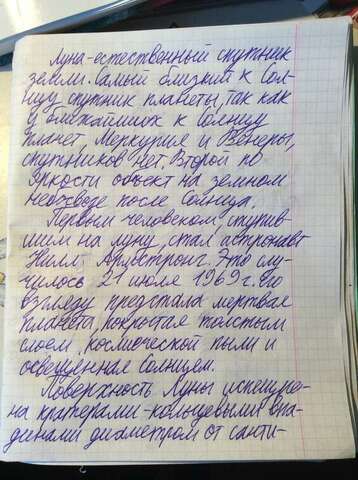 Луна-естественный спутник
земли. Самый близкий к Сол-
нцу спутник планеты, так как
у ближайших к Солнцу
планет, Меркурия и Венеры,
спутников нет. Второй по
яркости объект на земном
небосводе после Солнца.
Первым человеком, ступив-
шим на луну, стал астронавт
Нилл Армстронг. Это слу-
чилось 21 июля 1969 г. Его
взгляду предстала мертвая
планета, покрытая толстым
слоем космической пыли и
освещенная Солнцем.
Поверхность Луны испещре-
на кратерами-кольцевыми впа-
динами диаметром от санти-